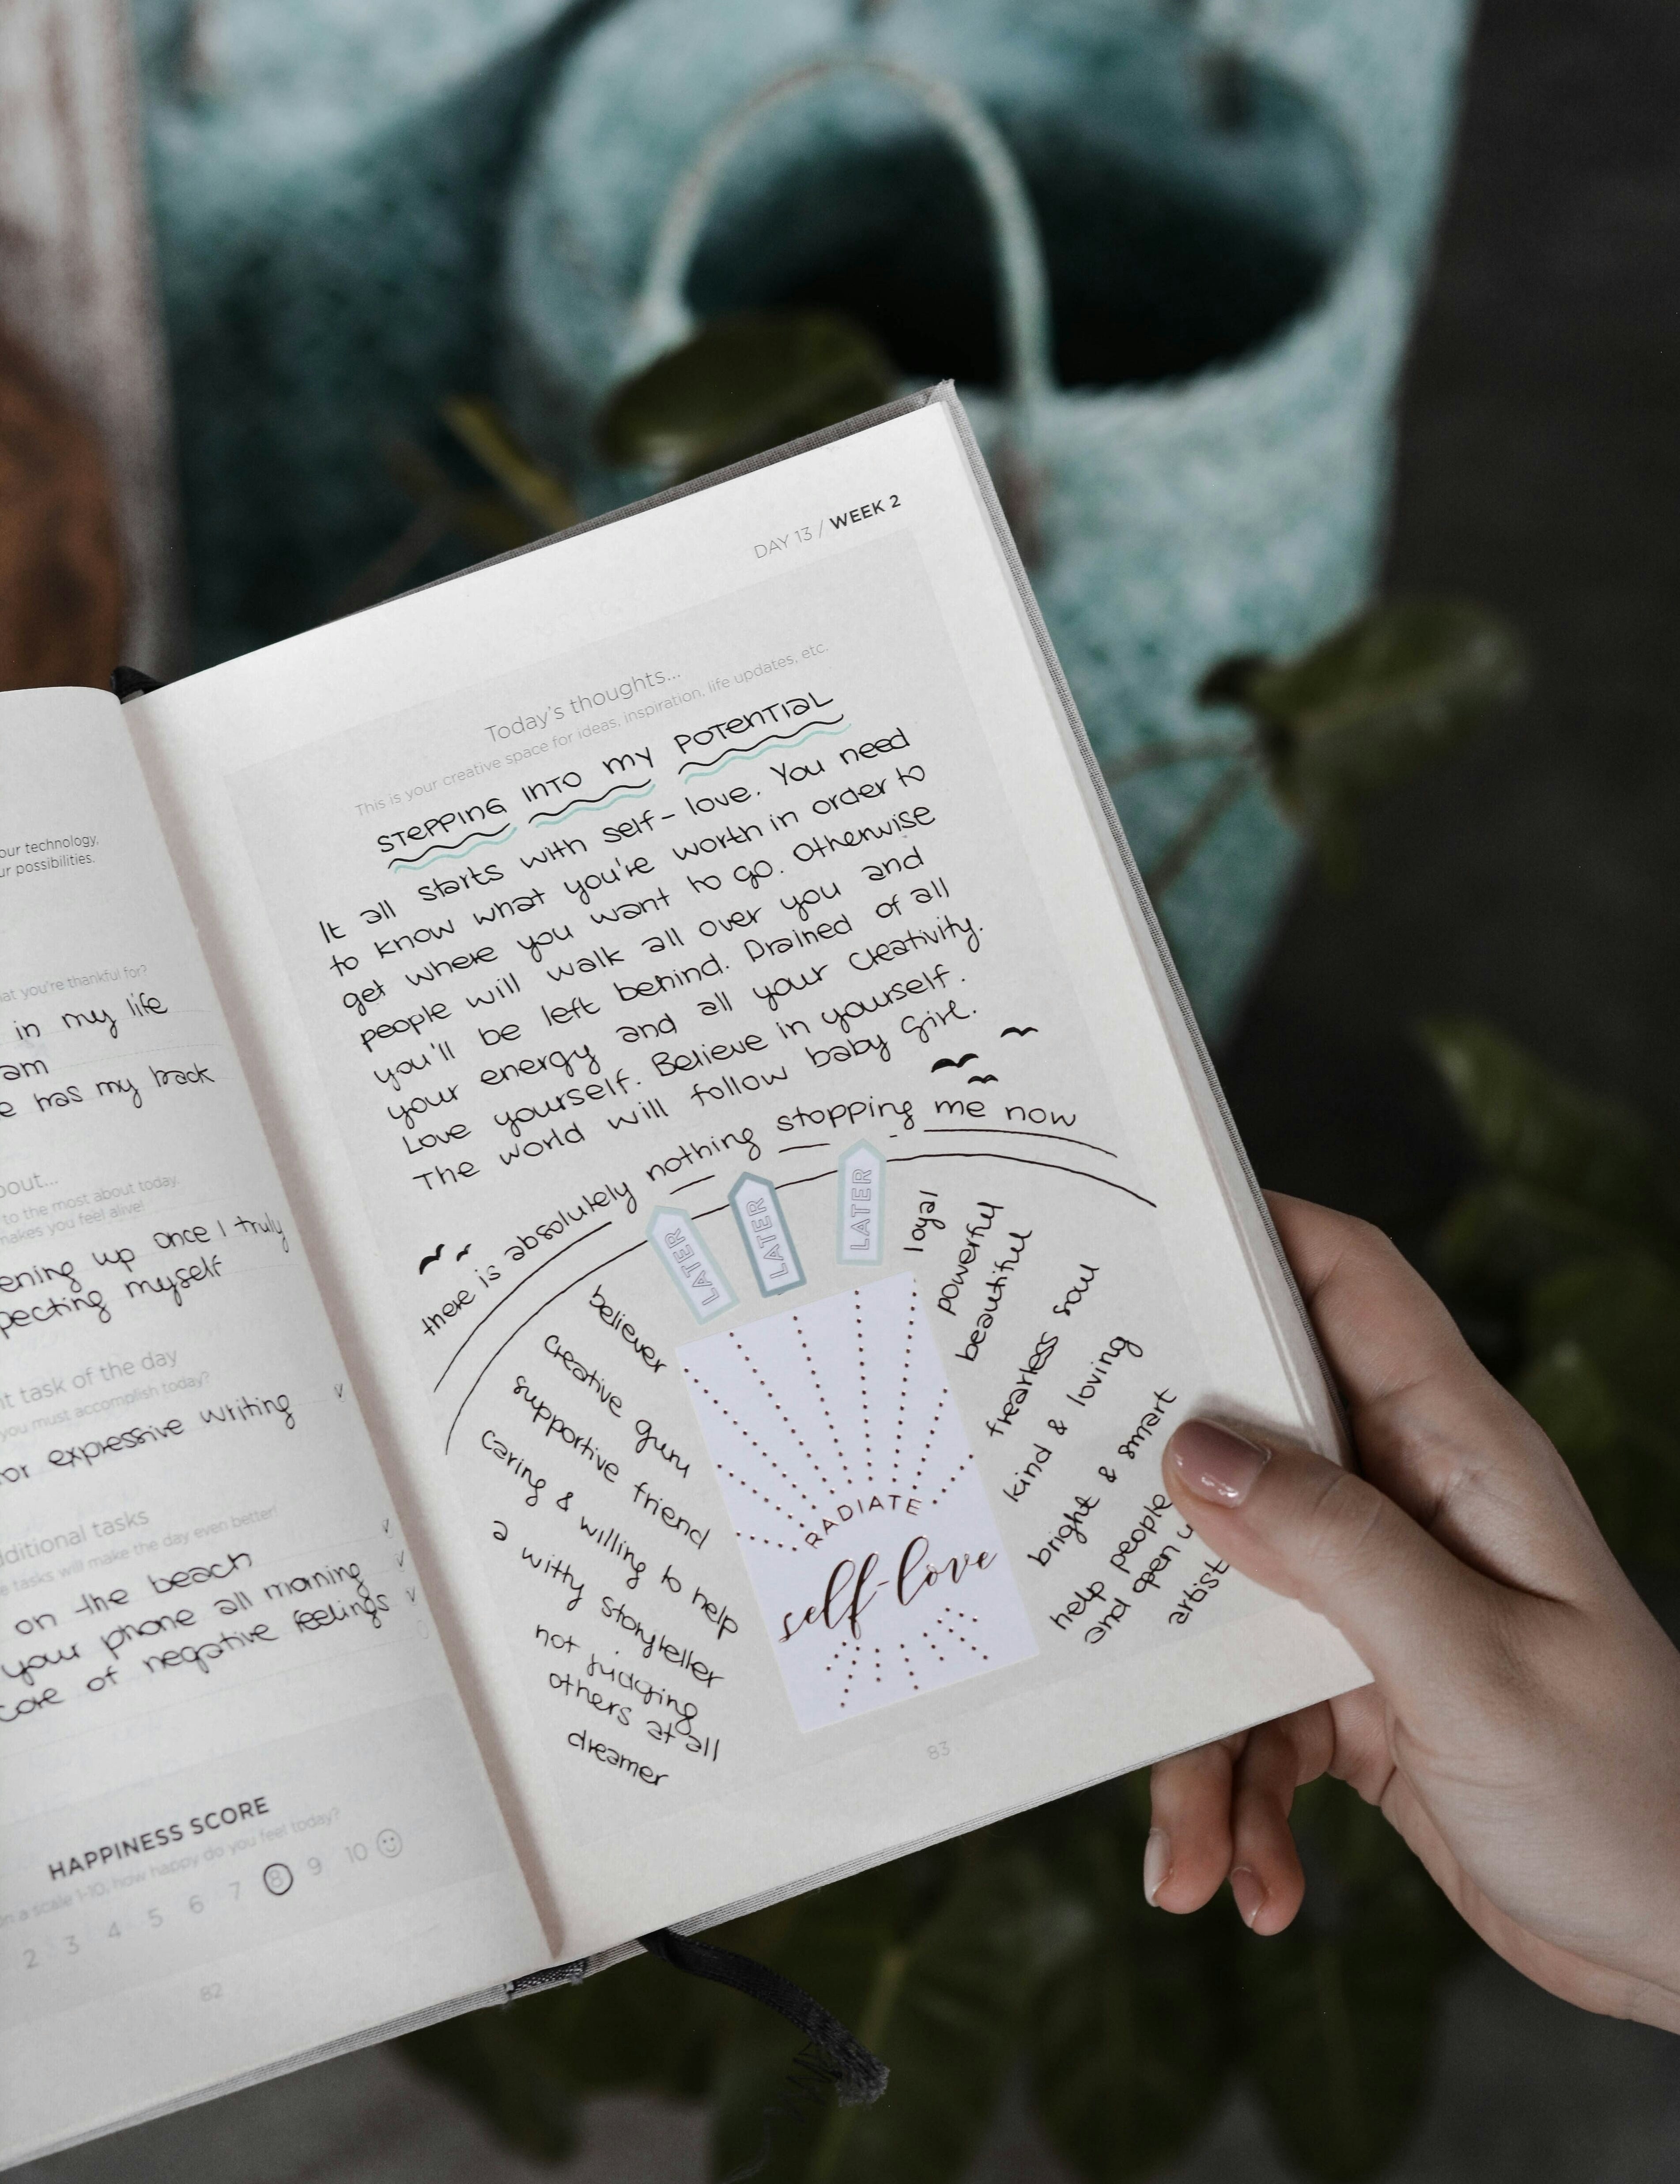 our technology,
ur possibilities.
hat you're thankful for?
in my life
am
e has my back
bout...
to the most about today,
makes you feel alive!
ening up once I truly
pecting myself
nt task of the day
you must accomplish today?
or expressive writing
dditional tasks
e tasks will make the day even better!
on the beach
your phone all morning
core of negative feelings
HAPPINESS SCORE
on a scale 1-10, how happy do you feel today?
2 3 4 5 6 7 8 9 10
82
DAY 13 / WEEK 2
Today's thoughts...
This is your creative space for ideas, inspiration, life updates, etc.
STEPPING INTO MY POTENTIAL
It all starts with self-love. You need
to know what you're worth in order to
get where you want to go. Otherwise
people will walk all over you and
you'll be left behind. Drained of all
your energy and all your creativity.
Love yourself. Believe in yourself.
The world will follow baby girl.
there is absolutely nothing stopping me now
LATER
LATER
LATER
believer
creative guru
supportive friend
caring & willing to help
a witty storyteller
not judging
others at all
dreamer
RADIATE
self-love
loyal
powerful
beautiful
fearless soul
kind & loving
bright & smart
help people
and open u
artist
83